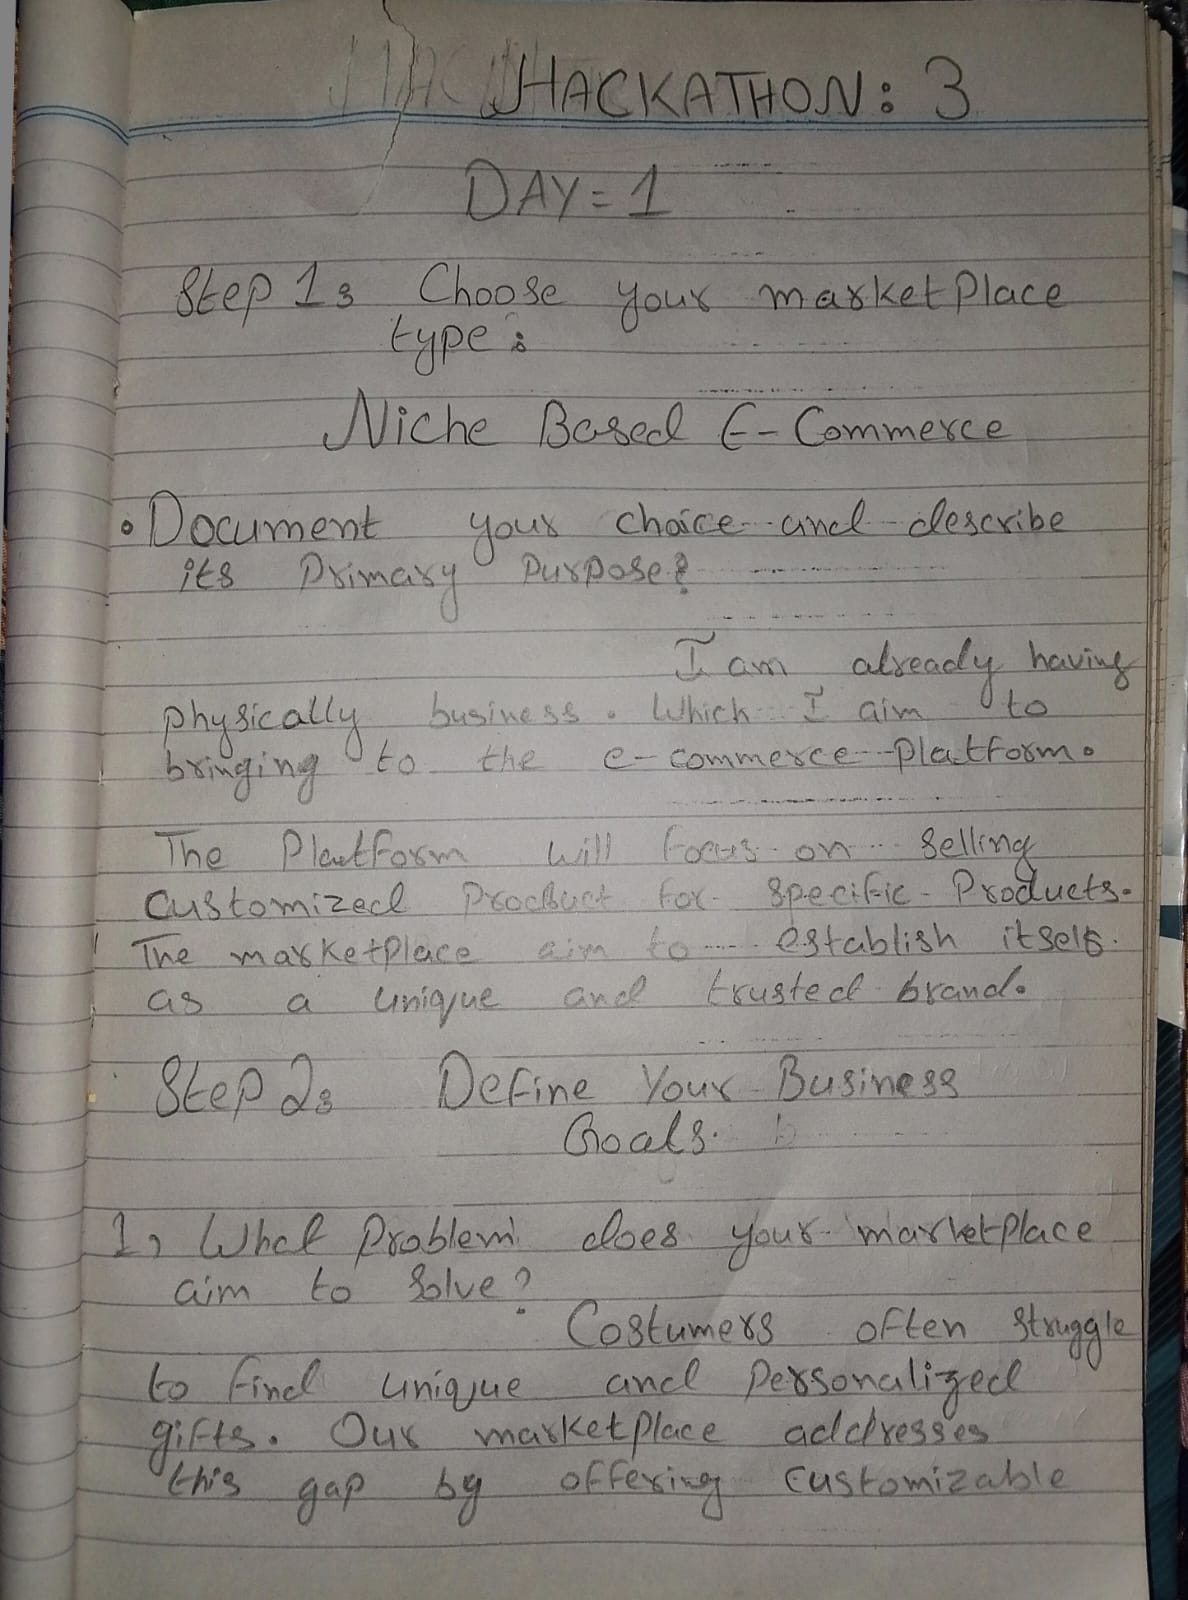 HACKATHON: 3
DAY=1
Step 1: Choose your marketPlace
type:
Niche Based E-Commerce
• Document your choice and describe
its Primary Purpose?
I am already having
physically business. Which I aim to
bringing to the e-commerce Platform.
The Platform will focus on selling
customized Product for specific Products.
The marketplace aim to establish itself
as a unique and trusted brand.
Step 2: Define Your Business
Goals.
1, What Problem does your marketplace
aim to Solve?
Costumers often struggle
to find unique and Personalized
gifts. Our marketplace addresses
this gap by offering customizable